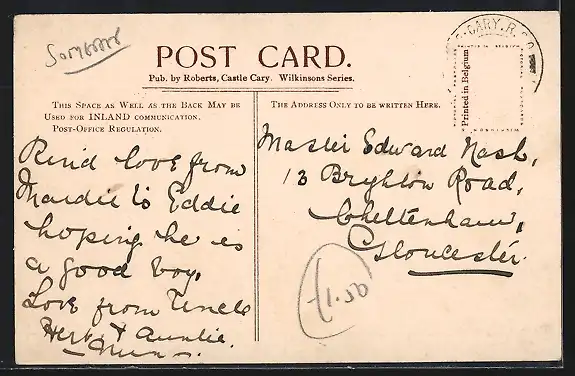 Somerset
POST CARD.
Pub. by Roberts, Castle Cary. Wilkinsons Series.
CARY.R.S.O
Printed in Belgium
THIS SPACE AS WELL AS THE BACK MAY BE
USED FOR INLAND COMMUNICATION.
POST-OFFICE REGULATION.
THE ADDRESS ONLY TO BE WRITTEN HERE.
love from
to Eddie
hoping he is
a good boy.
Love from Uncle
Herb & Auntie.
Master Edward Nash,
13 Bryhton Road,
Cheltenham,
Gloucester.
£1.50